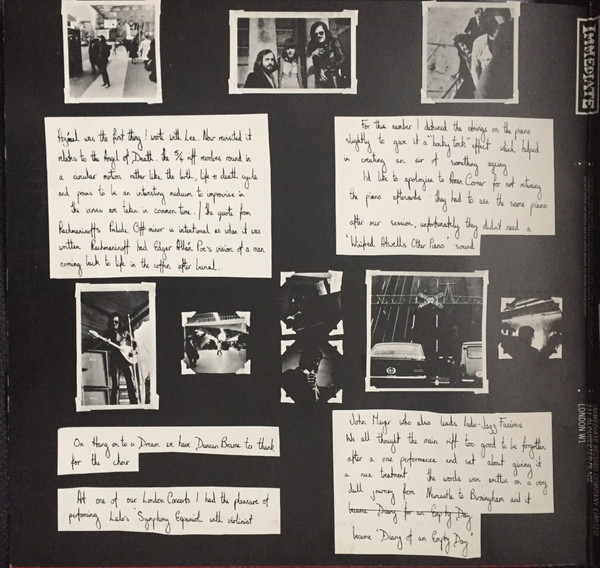 IMMEDIATE
Azrael was the first thing I wrote with Lee. Now revisited it
relates to the Angel of Death, the 5/4 riff revolves round in
a circular motion rather like the birth, life & death cycle
and proves to be an interesting medium to improvise in
the verses are taken in common time. / the quote from
Rachmaninoff's Prelude C# minor is intentional as when it was
written Rachmaninoff had Edgar Allen Poe's vision of a man
coming back to life in the coffin after burial.
For this number I detuned the strings on the piano
slightly to give it a "honky tonk" effect which helped
in creating an air of something ageing.
I'd like to apologise to Amen Corner for not retuning
the piano afterwards they had to use the same piano
after our session, unfortunately they didn't need a
'Winifred Atwells Other Piano' sound
On Hang on to a Dream we have Duncan Browne to thank
for the choir
At one of our London Concerts I had the pleasure of
performing Lalo's 'Symphony Espanol with violinist
John Mayer who also leads Indo-Jazz Fusions
We all thought the main riff too good to be forgotten
after a one performance and set about giving it
a new treatment the words were written on a very
dull journey from Newcastle to Birmingham and it
became Diary for an Empty Day
became "Diary of an Empty Day"
LONDON W1